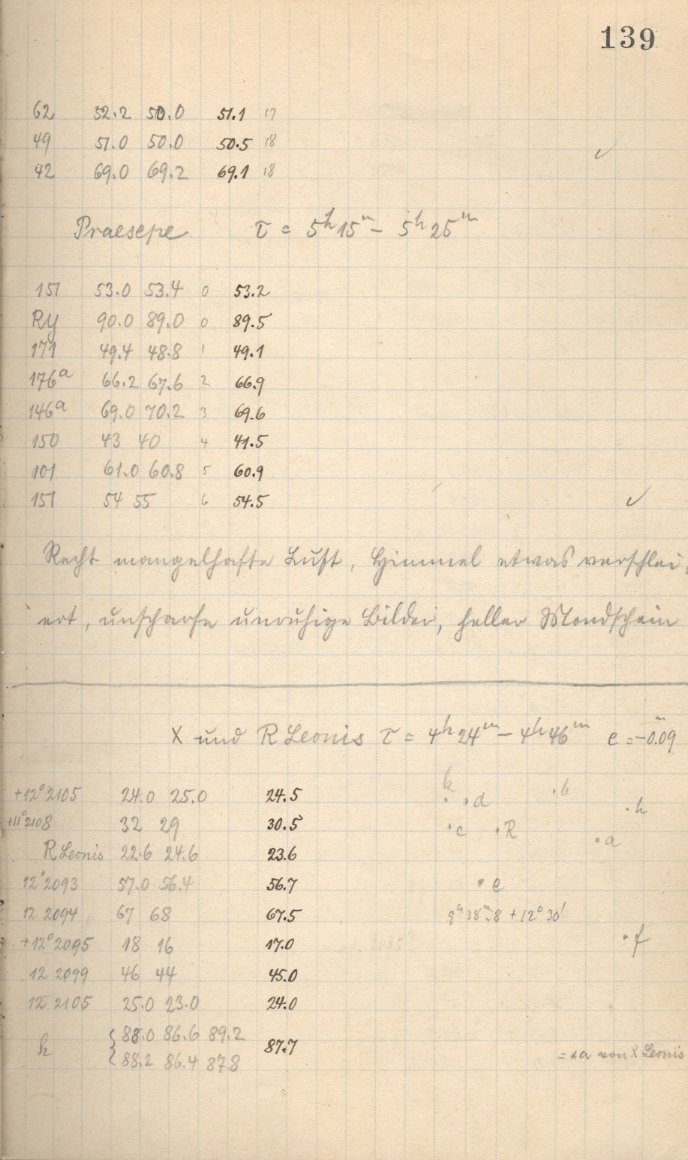 139
62 52.2 50.0 51.1 17
49 51.0 50.0 50.5 18
42 69.0 69.2 69.1 18
Praesepe τ = 5h 15m – 5h 25m
151 53.0 53.4 0 53.2
Ry 90.0 89.0 0 89.5
171 49.4 48.8 1 49.1
176a 66.2 67.6 2 66.9
146a 69.0 70.2 3 69.6
150 43 40 4 41.5
101 61.0 60.8 5 60.9
151 54 55 6 54.5
Recht mangelhafte Luft, Himmel etwas verschlei-
ert, unscharfe unruhige Bilder, heller Mondschein
X und R Leonis τ = 4h 24m – 4h 46m e = –0.m09
+12° 2105 24.0 25.0 24.5
+11° 2108 32 29 30.5
R Leonis 22.6 24.6 23.6
12° 2093 57.0 56.4 56.7
12 2094 67 68 67.5
+12° 2095 18 16 17.0
12 2099 46 44 45.0
12 2105 25.0 23.0 24.0
h { 88.0 86.6 89.2 87.7
88.2 86.4 87.8
k d b h
c R a
e
9h 38m.8 +12° 30'
f
= *a von X Leonis